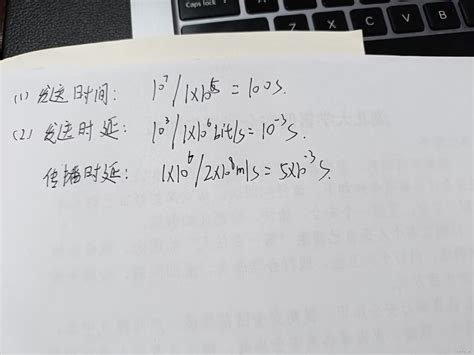 Caps lock
(1) 发送时间: 10⁷/1×10⁵ = 100s.
(2) 发送时延: 10³/1×10⁶bit/s = 10⁻³s.
传播时延: 1×10⁶/2×10⁸m/s = 5×10⁻³s.